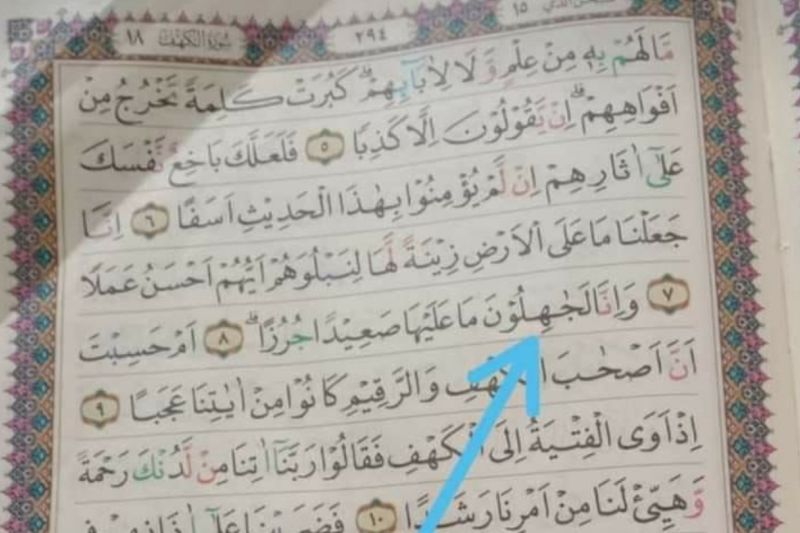 ١٥
٢٩٤
سُورَةُ الْكَهْف ١٨
مَّا لَهُمْ بِهٖ مِنْ عِلْمٍ وَّلَا لِاٰبَاۤىِٕهِمْۗ كَبُرَتْ كَلِمَةً تَخْرُجُ مِنْ
اَفْوَاهِهِمْۗ اِنْ يَّقُوْلُوْنَ اِلَّا كَذِبًا ٥ فَلَعَلَّكَ بَاخِعٌ نَّفْسَكَ
عَلٰٓى اٰثَارِهِمْ اِنْ لَّمْ يُؤْمِنُوْا بِهٰذَا الْحَدِيْثِ اَسَفًا ٦ اِنَّا
جَعَلْنَا مَا عَلَى الْاَرْضِ زِيْنَةً لَّهَا لِنَبْلُوَهُمْ اَيُّهُمْ اَحْسَنُ عَمَلًا
٧ وَاِنَّا لَجٰهِلُوْنَ مَا عَلَيْهَا صَعِيْدًا جُرُزًاۗ ٨ اَمْ حَسِبْتَ
اَنَّ اَصْحٰبَ الْكَهْفِ وَالرَّقِيْمِ كَانُوْا مِنْ اٰيٰتِنَا عَجَبًا ٩
اِذْ اَوَى الْفِتْيَةُ اِلَى الْكَهْفِ فَقَالُوْا رَبَّنَآ اٰتِنَا مِنْ لَّدُنْكَ رَحْمَةً
وَّهَيِّئْ لَنَا مِنْ اَمْرِنَا رَشَدًا ١٠ فَضَرَبْنَا عَلٰٓى اٰذَانِهِمْ فِى